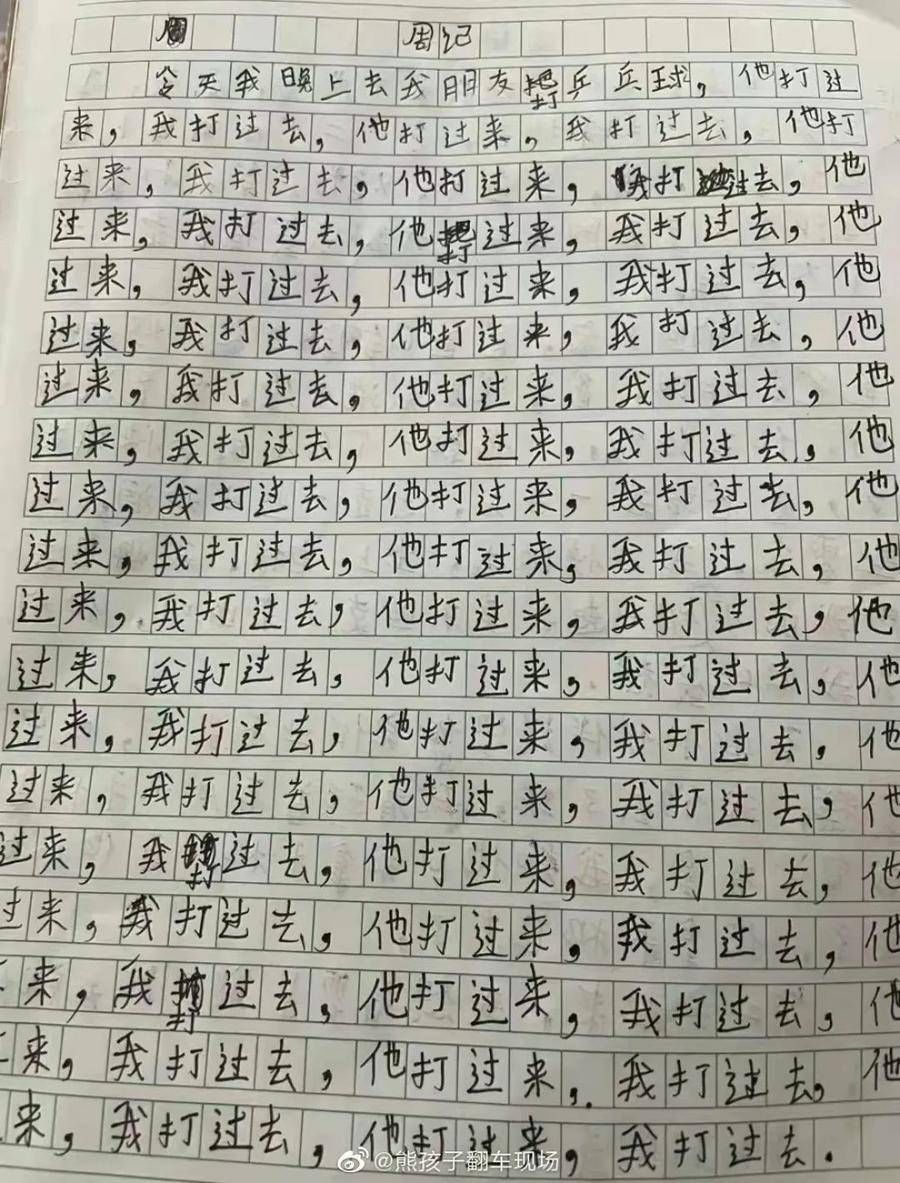 周记
今天我晚上去我朋友打乒乓球，他打过
来，我打过去，他打过来，我打过去，他打
过来，我打过去，他打过来，我打过去，他
过来，我打过去，他打过来，我打过去，他
过来，我打过去，他打过来，我打过去，他
过来，我打过去，他打过来，我打过去，他
过来，我打过去，他打过来，我打过去，他
过来，我打过去，他打过来，我打过去，他
过来，我打过去，他打过来，我打过去，他
过来，我打过去，他打过来，我打过去，他
过来，我打过去，他打过来，我打过去，他
过来，我打过去，他打过来，我打过去，他
过来，我打过去，他打过来，我打过去，他
过来，我打过去，他打过来，我打过去，他
过来，我打过去，他打过来，我打过去，他
过来，我打过去，他打过来，我打过去，他
来，我打过去，他打过来，我打过去，他
来，我打过去，他打过来，我打过去，他
来，我打过去，他打过来，我打过去.
@熊孩子翻车现场